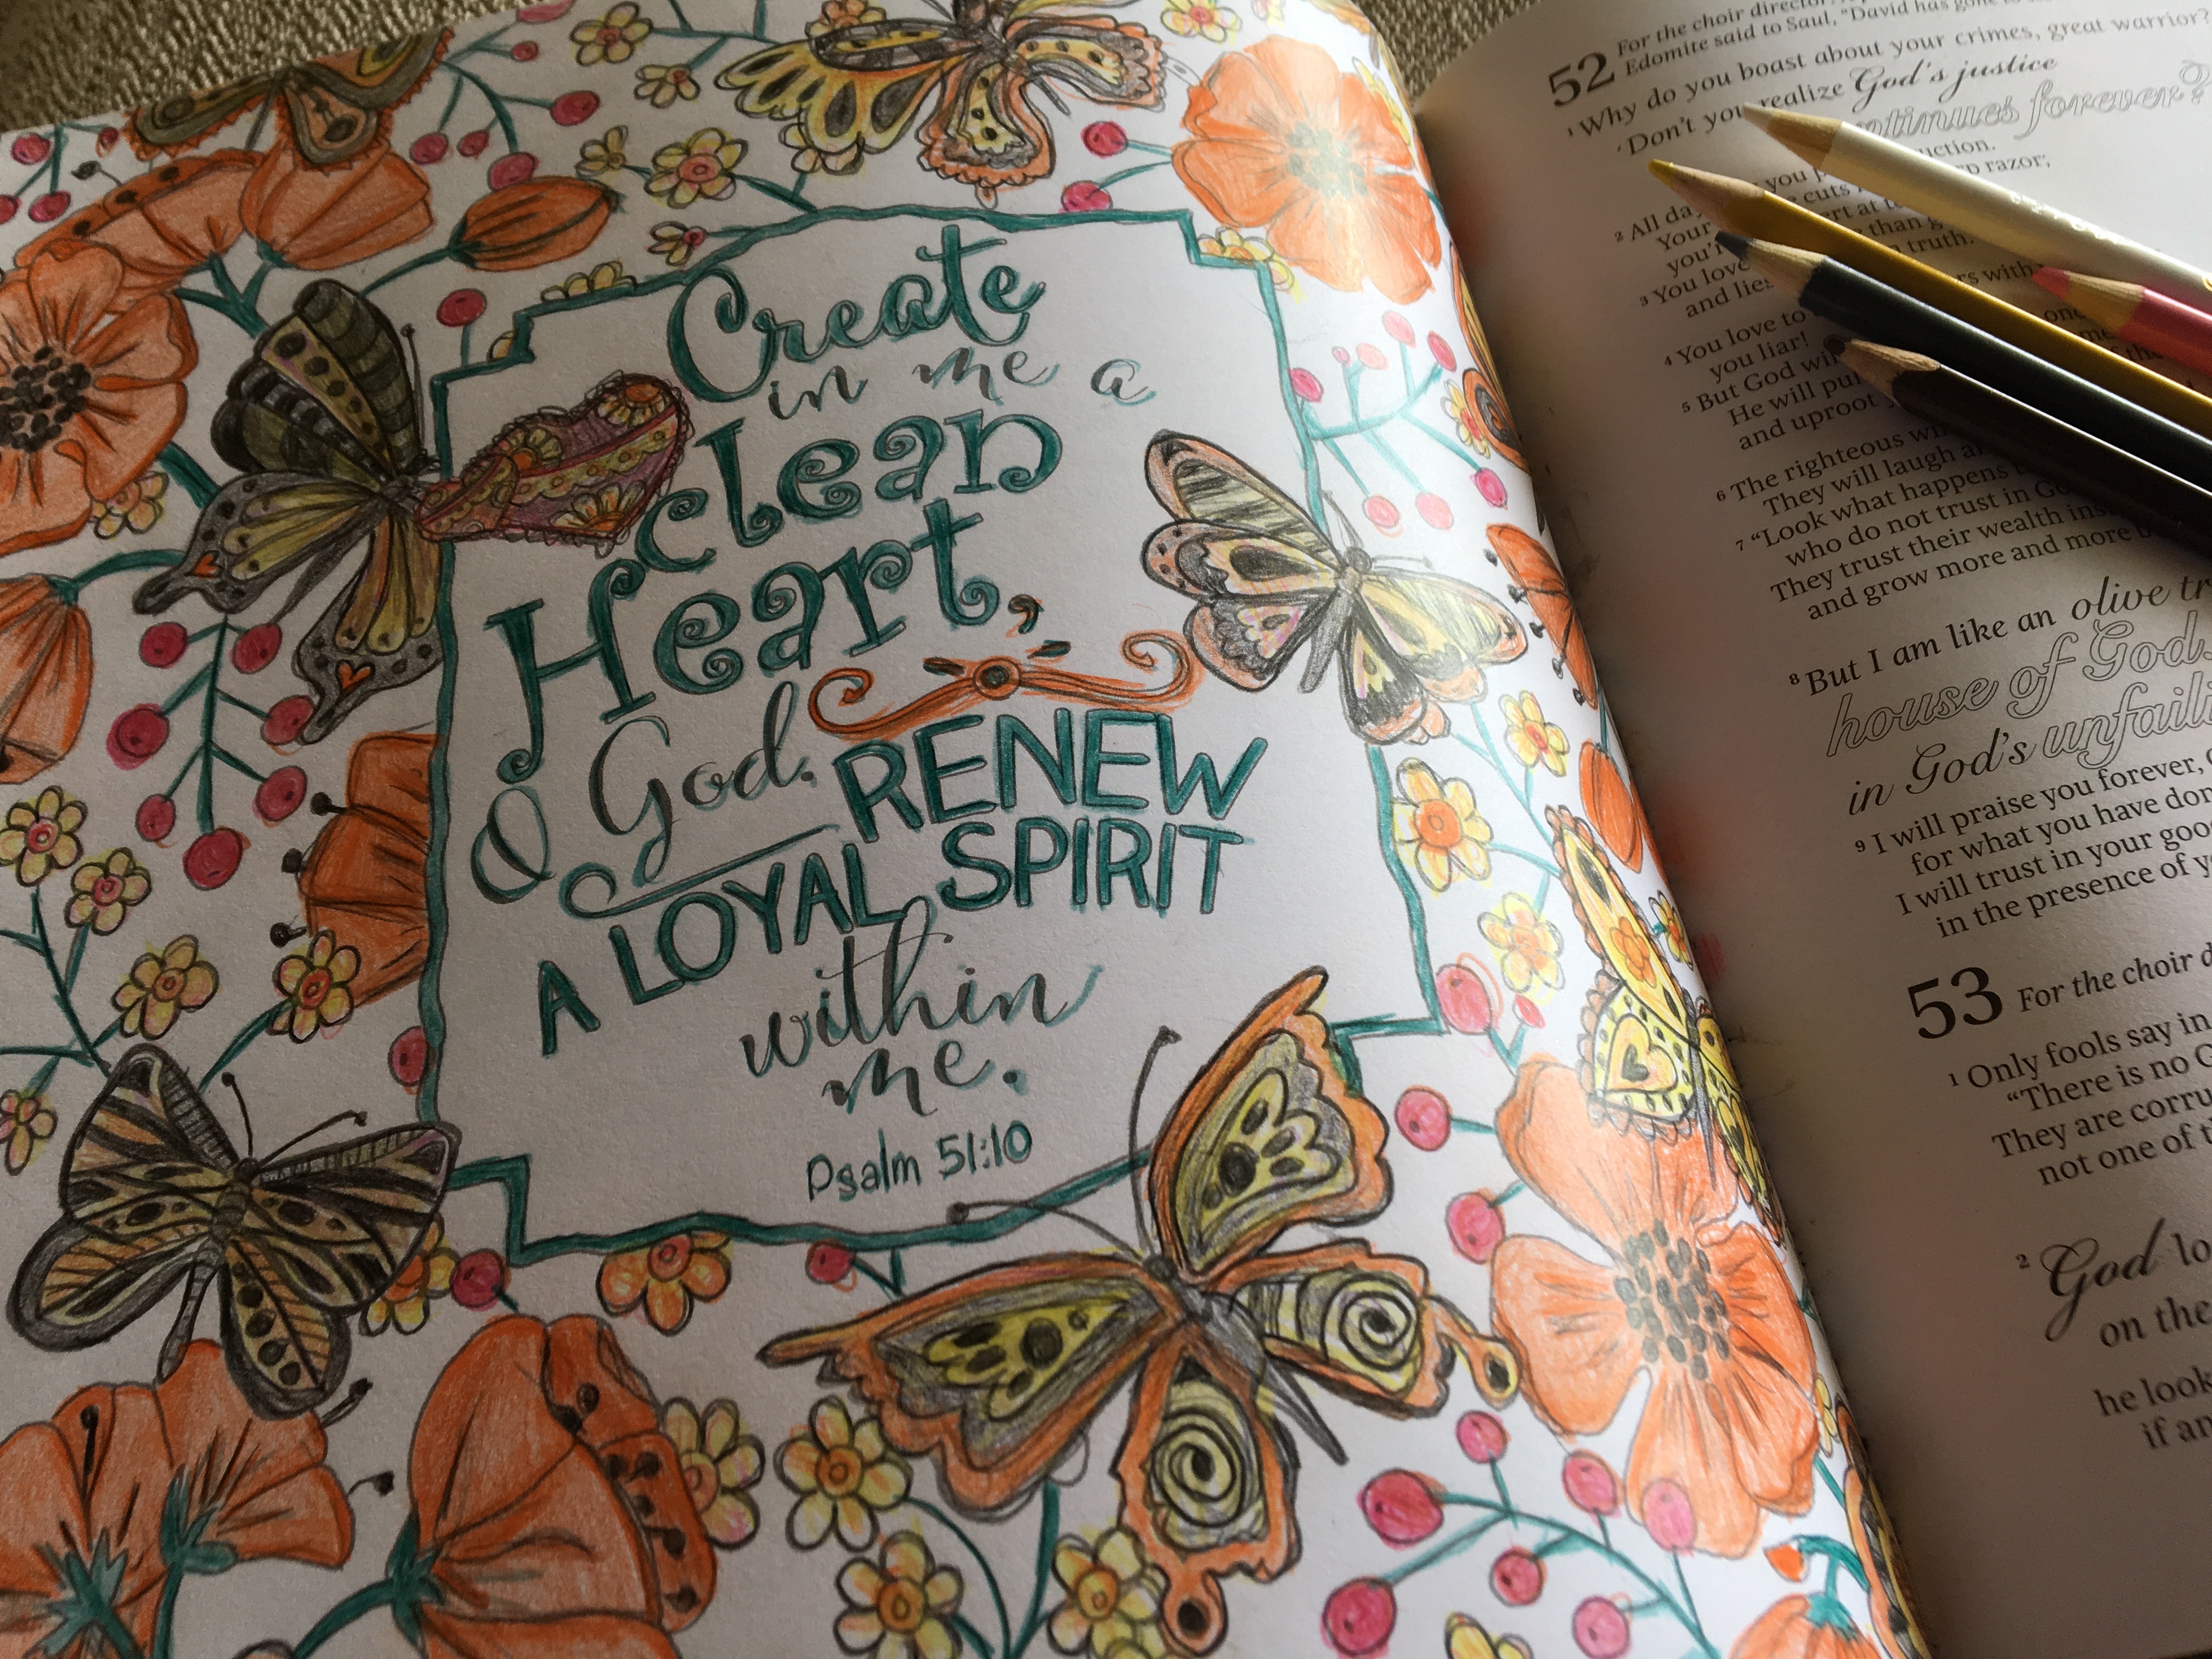 Create
in me a
clean
Heart,
O God.
RENEW
A LOYAL SPIRIT
within
me.
Psalm 51:10
52 For the choir director:
Edomite said to Saul, "David has gone to
1 Why do you boast about your crimes, great warrior?
Don't you realize God's justice
continues forever?
uction.
2 All day you p
Your cuts razor;
you're ert at te
3 You love than g
and lies truth.
4 You love to
you liar!
5 But God will
He will pul
and uproot
6 The righteous wi
They will laugh a
7 "Look what happens
who do not trust in Go
They trust their wealth ins
and grow more and more
8 But I am like an olive tr
house of God.
in God's unfaili
9 I will praise you forever,
for what you have don
I will trust in your good
in the presence of y
53 For the choir d
1 Only fools say in
"There is no G
They are corru
not one of t
2 God lo
on the
he look
if an